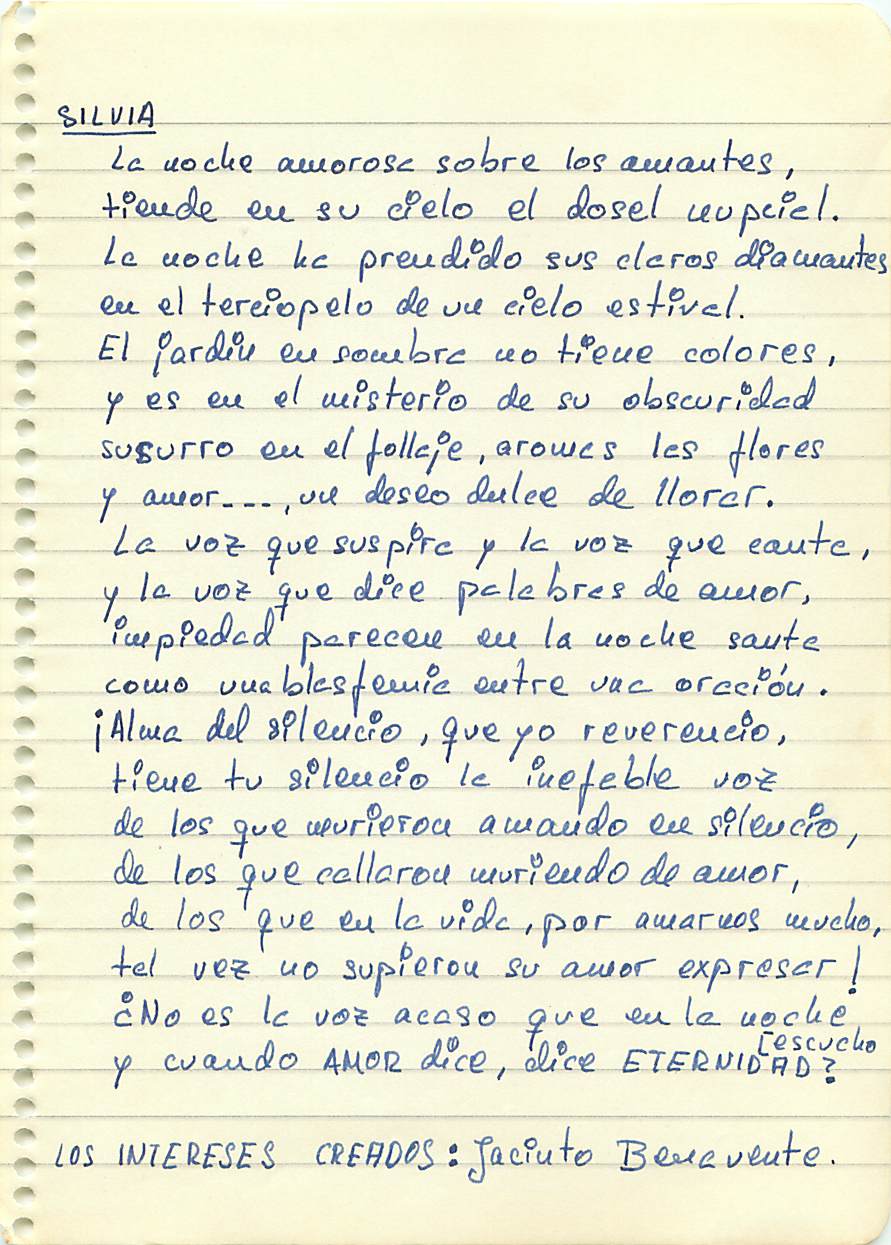 SILVIA
La noche amorosa sobre los amantes,
tiende en su cielo el dosel nupcial.
La noche ha prendido sus claros diamantes
en el terciopelo de un cielo estival.
El jardín en sombra no tiene colores,
y es en el misterio de su obscuridad
susurro en el follaje, aromas las flores
y amor---, un deseo dulce de llorar.
La voz que suspira y la voz que canta,
y la voz que dice palabras de amor,
impiedad parecen en la noche santa
como una blasfemia entre una oración.
¡Alma del silencio, que yo reverencio,
tiene tu silencio la inefable voz
de los que murieron amando en silencio,
de los que callaron muriendo de amor,
de los que en la vida, por amarnos mucho,
tal vez no supieron su amor expresar!
¿No es la voz acaso que en la noche
[escucho
y cuando AMOR dice, dice ETERNIDAD?
LOS INTERESES CREADOS: Jacinto Benavente.